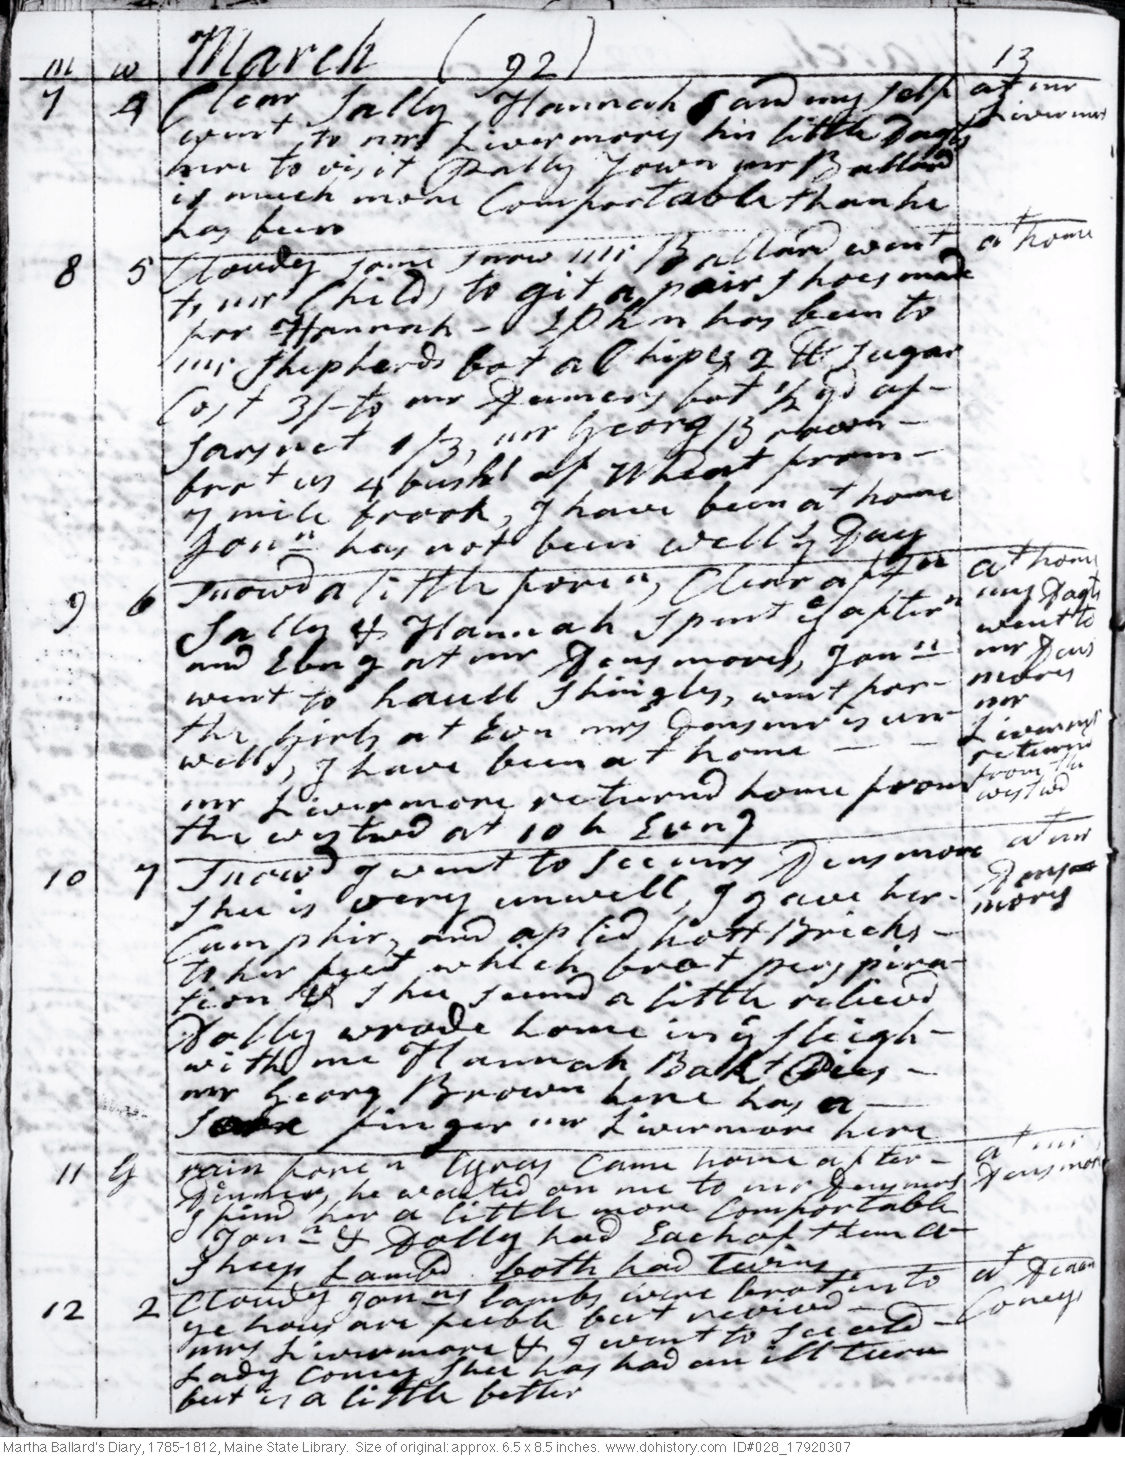 m w March (92) 13
7 4 Clear Sally Hannah & and my self at mr
went to mr Livermores his little Dagt Livermors
here to visit Dally Town mr Ballard
is much more Comfortable than he
has been
8 5 Cloudy some snow mr Ballard went at home
to mr Childs to git a pair shoes made
for Hannah - Ephm has been to
mr Shepherds bot a Chipes 2 lb Sugar
Cost 3/- to mr Densmors bot 1/2 yd of -
Sarsnet 1/3, mr Georg Brown -
brot us 4 bushl of Wheat from -
7 mile brook, I have been at home
Jonn has not been well ys Day
9 6 Snowd a little foren, Clear aftn at home
Sally & Hannah spent ye aftern my Dagts
and Evng at mr Densmores, Jonn went to
went to haull shingles, went for - mr Dens
the Girls at Evn mrs Densmor is un- mores
well, I have been at home - - mr Livermor
mr Livermore returnd home from returnd
the westwd at 10 h Evng from the westwd
10 7 Snowd I went to see mrs Densmore at mr
shee is very unwell, I gave her - Densmores
Camphir, and aplied hott Bricks -
to her feet which brot perspira-
tion & shee seemd a little relievd
Dolly wrode home in ye sleigh -
with me Hannah Bakt Pies -
mr Georg Brown here has a -
Sore finger mr Livermore here
11 G rain foren Cyrus Came home after - at mr
Dinner, he waited on me to mr Densmors Densmors
I find her a little more Comfortable
Jonn & Dolly had Each of them a -
sheep Lambd both had twins
12 2 Cloudy Jonns lambs were brot in to at Deacn
ye hous are feeble but revived - Coneys
mrs Livermore & I went to see old -
Lady Coney shee has had an ill turn
but is a little better
Martha Ballard's Diary, 1785-1812, Maine State Library. Size of original: approx. 6.5 x 8.5 inches. www.dohistory.com ID#028_17920307